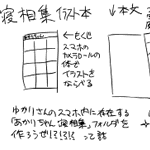 寝相集イラスト本
↓本文
←もくじ
スマホの
カメラロールの
体で
イラストを
ならべる
ゆかりさんのスマホ内に存在する
「あかりちゃん寝相集」フォルダを
作ろうぜ!?!?!? って話